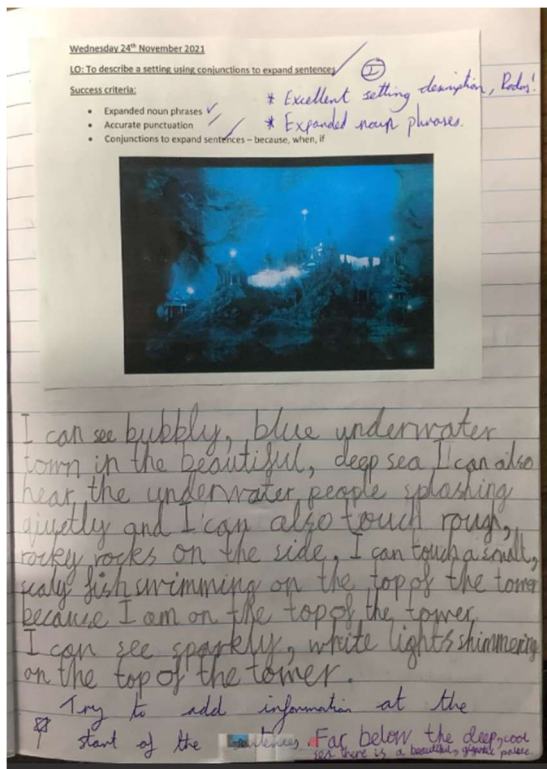 Wednesday 24th November 2021
LO: To describe a setting using conjunctions to expand sentences
Success criteria:
Expanded noun phrases
Accurate punctuation
Conjunctions to expand sentences – because, when, if
* Excellent setting description,
* Expanded noun phrases.
I can see bubbly, blue underwater
town in the beautiful, deep sea I can also
hear the underwater people splashing
qiuetly and I can also touch rough,
rocky rocks on the side. I can touch a small,
scaly fish swimming on the top of the tower
because I am on the top of the tower.
I can see sparkly, white lights shimmering
on the top of the tower.
Try to add information at the
start of the sentences. Far below the deep, cool
sea there is a beautiful, gigantic palace.